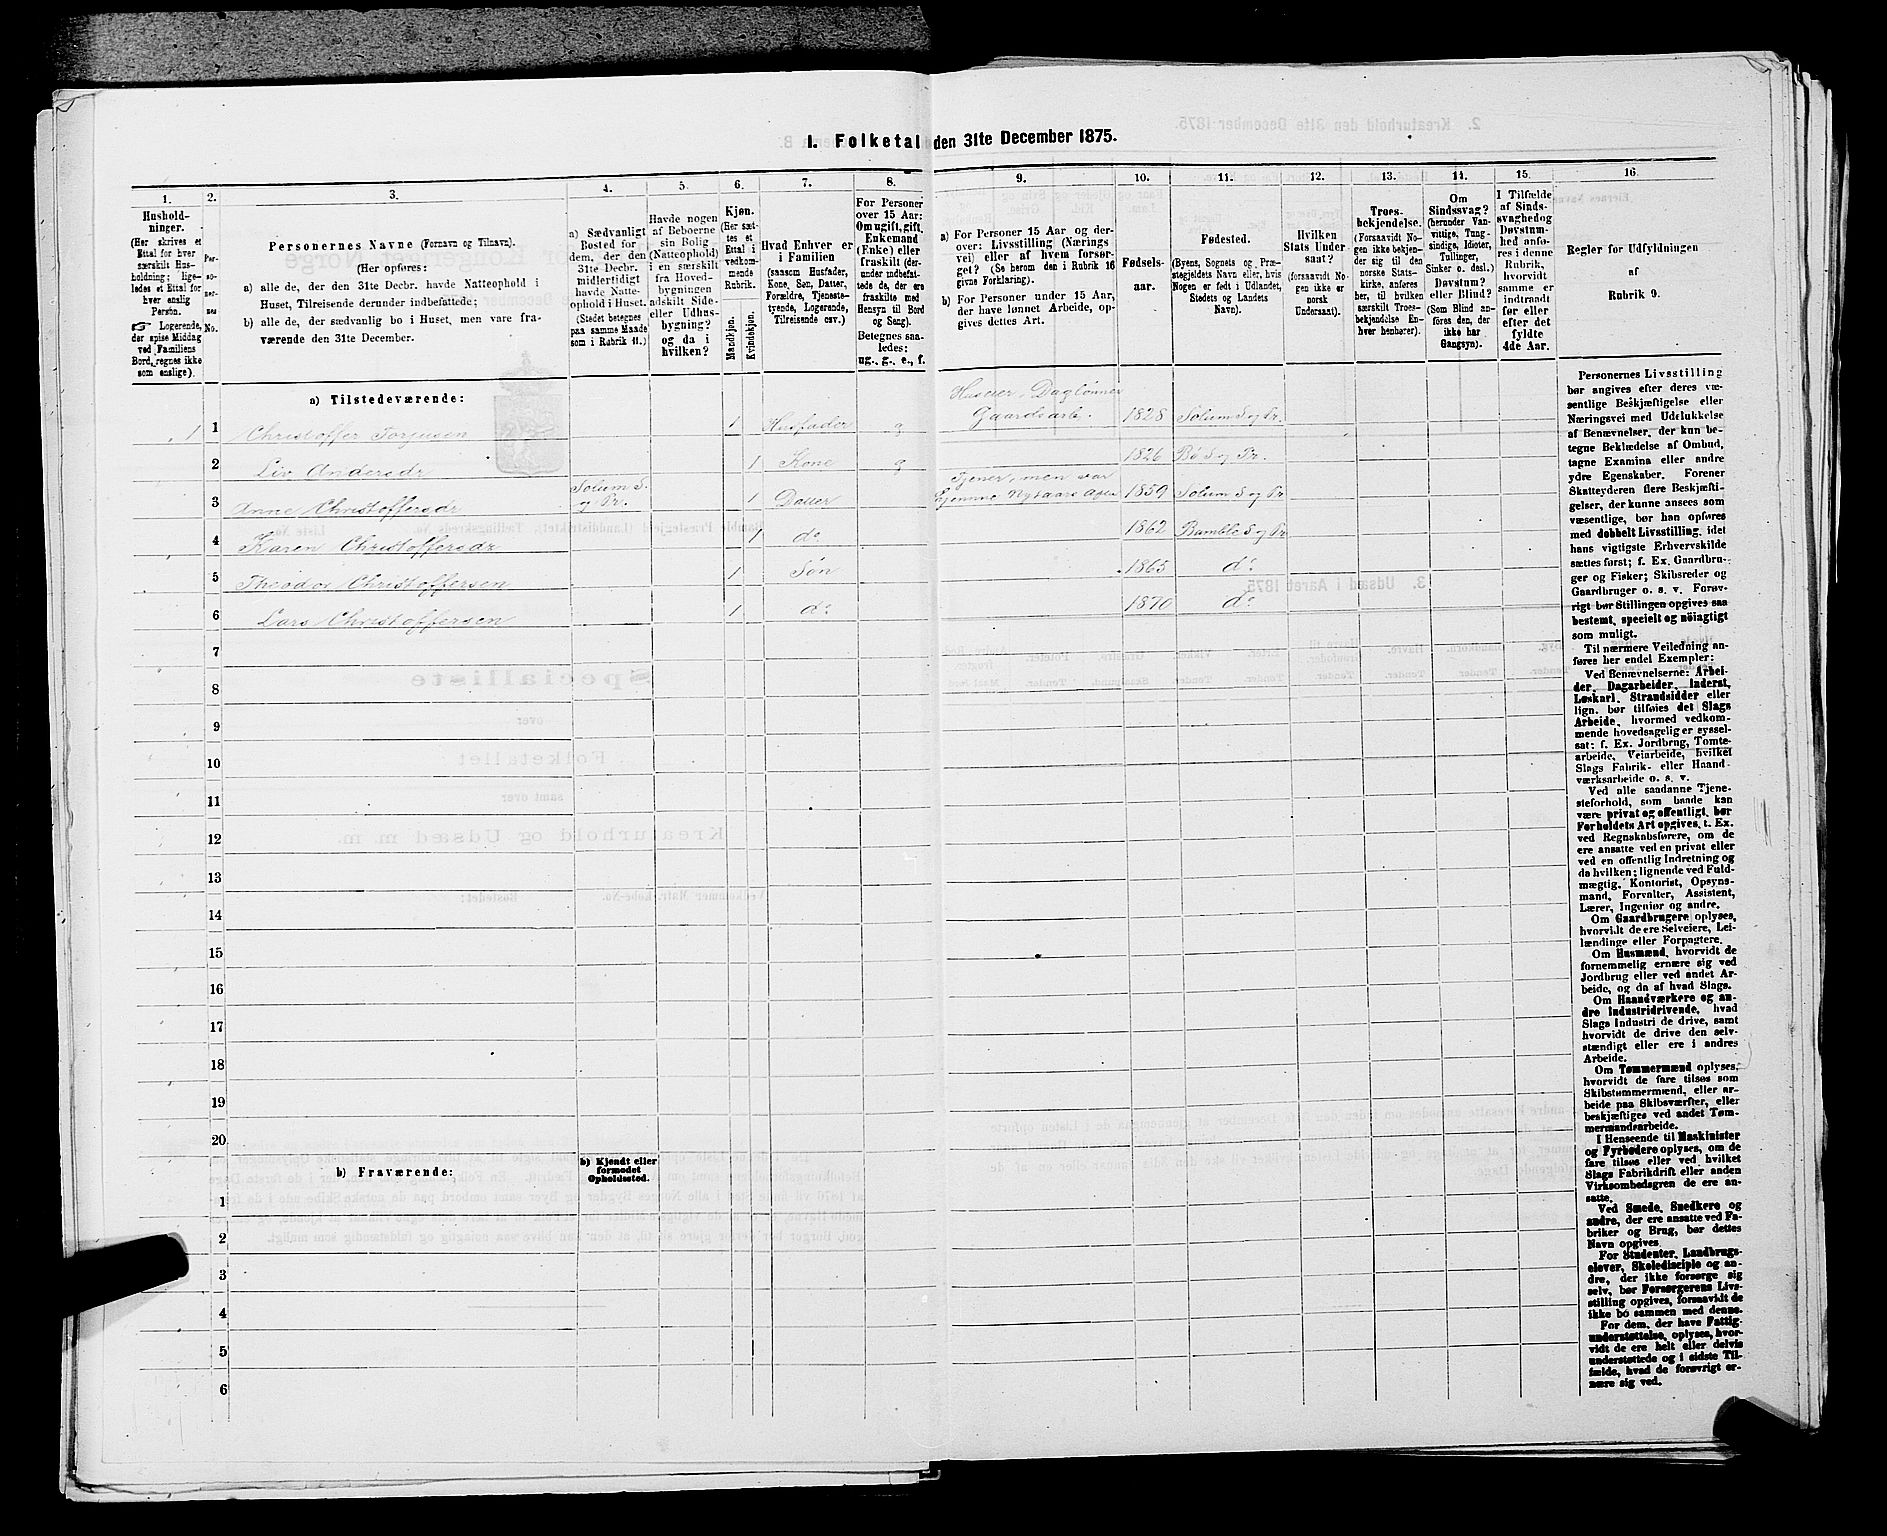 I. Folketal den 31te December 1875.
1.
Hushold-
ninger.
(Her skrives et
Ettal for hver
særskilt Hus-
holdning; lige-
ledes et Ettal for
hver enslig
Person.
☞ Logerende,
der spise Middag
ved Familiens
Bord, regnes ikke
som enslige).
2.
Per-
so-
ner-
nes
No.
3.
Personernes Navne (Fornavn og Tilnavn).
(Her opføres:
a) alle de, der den 31te Decbr. havde Natteophold i
Huset, Tilreisende derunder indbefattede;
b) alle de, der sædvanlig bo i Huset, men vare fra-
værende den 31te December.
4.
a) Sædvanligt
Bosted for
dem, der den
31te Decbr.
midlertidigt
havde Natte-
ophold i Huset.
(Stedet betegnes
paa samme Maade
som i Rubrik 11.)
5.
Havde nogen
af Beboerne
sin Bolig
(Natteophold)
i en særskilt
fra Hoved-
bygningen
adskilt Side-
eller Udhus-
bygning?
og da i
hvilken?
6.
Kjøn.
(Her sæt-
tes et
Ettal i
vedkom-
mende
Rubrik.
Mandkjøn.
Kvindekjøn.
7.
Hvad Enhver er
i Familien
(saasom Husfader,
Kone, Søn, Datter,
Forældre, Tjeneste-
tyende, Logerende,
Tilreisende osv.)
8.
For Personer
over 15 Aar:
Om ugift, gift,
Enkemand
(Enke) eller
fraskilt (der-
under indbefat-
tede de, der ere
fraskilte med
Hensyn til Bord
og Seng).
Betegnes saa-
ledes:
ug., g., e., f.
9.
a) For Personer 15 Aar og der-
over: Livsstilling (Nærings
vei) eller af hvem forsør-
get? (Se herom den i Rubrik 16
givne Forklaring).
b) For Personer under 15 Aar,
der have lønnet Arbeide, op-
gives dettes Art.
10.
Fødsels-
aar.
11.
Fødested.
(Byens, Sognets og Præ-
stegjeldets Navn eller, hvis
Nogen er født i Udlandet,
Stedets og Landets
Navn).
12.
Hvilken
Stats Under
saat?
(forsaavidt No-
gen ikke er
norsk
Undersaat).
13.
Troes-
bekjendelse.
(Forsaavidt No-
gen ikke bekjen-
der sig til den
norske Stats-
kirke, anføres
her, til hvilken
særskilt Troes-
bekjendelse En-
hver henhører).
14.
Om
Sindssvag?
(herunder Van-
vittige, Tung-
sindige, Idioter,
Tullinger,
Sinker o. desl.)
Døvstum?
eller Blind?
(Som Blind an-
føres den, der
ikke har
Gangsyn).
15.
I Tilfælde
af Sinds-
svaghed og
Døvstum-
hed anfø-
res i denne
Rubrik,
hvorvidt
samme er
indtraadt
før eller
efter det
fyldte
4de Aar.
16.
Regler for Udfyldningen
af
Rubrik 9.
a) Tilstedeværende:
1 1 Christoffer Torjusen 1 Husfader g Huseier, Daglønner Gaardsarb. 1828 Solum S og Pr.
2 Liv Andersdr 1 Kone g 1826 Bø S og Pr.
3 Anne Christoffersdr Solum S. og Pr. 1 Datter Tjener, men var hjemme 1859 Solum S og Pr
4 Karen Christoffersdr 1 do 1862 Bamble S og Pr
5 Theodor Christoffersen 1 Søn 1865 do
6 Lars Christoffersen 1 do 1870 do
7
8
9
10
11
12
13
14
15
16
17
18
19
20
b) Fraværende:
b) Kjendt eller
formodet
Opholdssted.
1
2
3
4
5
6
Personernes Livsstilling
bør angives efter deres væ-
sentlige Beskjæftigelse eller
Næringsvei med Udelukkelse
af Benævnelser, der kun be-
tegne Beklædelse af Ombud,
tagne Examina eller andre
ydre Egenskaber. Forener
Skatteyderen flere Beskjæfti-
gelser, der kunne ansees som
væsentlige, bør han opføres
med dobbelt Livsstilling, idet
hans vigtigste Erhvervskilde
sættes først; f. Ex. Gaardbru-
ger og Fisker; Skibsreder og
Gaardbruger o. s. v. Forøv-
rigt bør Stillingen opgives saa
bestemt, specielt og nöiagtigt
som muligt.
Til nærmere Veiledning an-
føres her endel Exempler:
Ved Benævnelserne: Arbei-
der, Dagarbeider, Inderst,
Løskarl, Strandsidder eller
lign. bør tilføies det Slags
Arbeide, hvormed vedkom-
mende hovedsagelig er syssel-
sat; f. Ex. Jordbrug, Tomte-
arbeide, Veiarbeide, hvilket
Slags Fabrik- eller Haand-
værksarbeide o. s. v.
Ved alle saadanne Tjene-
steforhold, som baade kan
være privat og offentligt, bør
Forholdets Art opgives, t. Ex.
ved Regnskabsførere, om de
ere ansatte ved en privat eller
ved en offentlig Indretning og
da hvilken; lignende ved Fuld-
mægtig, Kontorist, Opsyns-
mand, Forvalter, Assistent,
Lærer, Ingeniør og andre.
Om Gaardbrugere oplyses,
hvorvidt de ere Selveiere, Lei-
lændinge eller Forpagtere.
Om Husmænd, hvorvidt de
fornemmelig ernære sig ved
Jordbrug eller ved andet Ar-
beide, og da af hvad Slags.
Om Haandværkere og an-
dre Industridrivende, hvad
Slags Industri de drive, samt
hvorvidt de drive den selv-
stændigt eller ere i andres
Arbeide.
Om Tømmermænd oplyses,
hvorvidt de fare tilsøs som
Skibstømmermænd, eller ar-
beide paa Skibsværfter, eller
beskjæftiges ved andet Tøm-
mermandsarbeide.
I Henseende til Maskinister
og Fyrbødere oplyses, om de
fare tilsøs eller ved hvilket
Slags Fabrikdrift eller anden
Virksomhedsgren de ere an-
satte.
Ved Smede, Snedkere og
andre, der ere ansatte ved Fa-
briker og Brug, bør dettes
Navn opgives.
For Studenter, Landbrugs-
elever, Skoledisciple og an-
dre, der ikke forsørge sig
selv, bør Forsørgerens Livs-
stilling opgives, forsaavidt de
ikke bo sammen med denne.
For dem, der have Fattig-
understøttelse, oplyses, hvor-
vidt de ere helt eller delvis
understøttede og i sidste Til-
fælde, hvad de forøvrigt er-
nære sig ved.